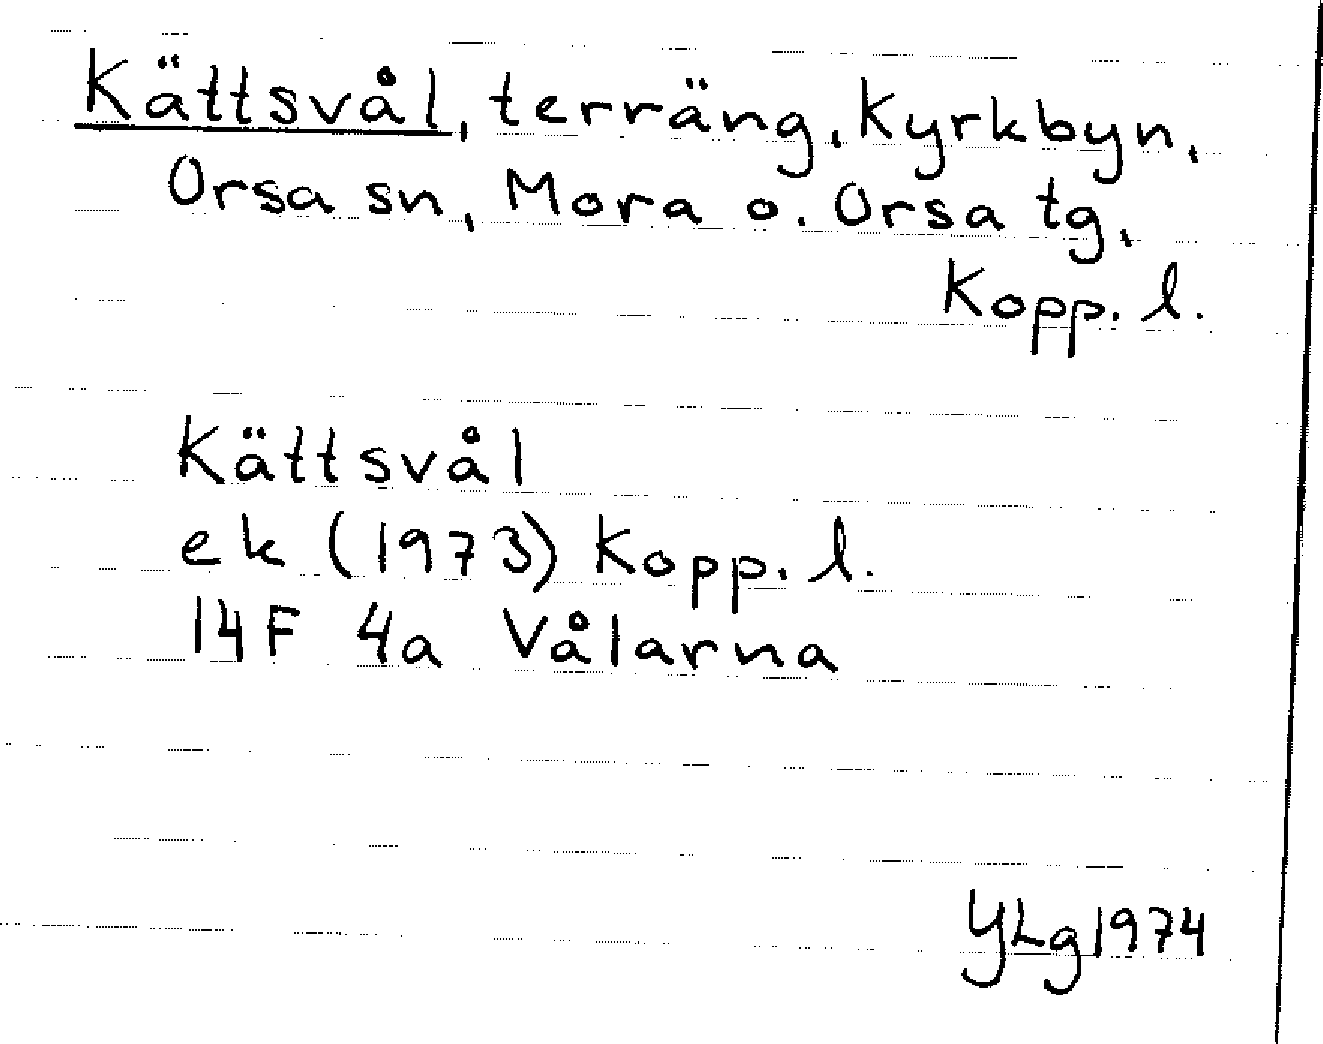 Kättsvål, terräng, Kyrkbyn,
Orsa sn, Mora o. Orsa tg,
Kopp. l.
Kättsvål
ek (1973) Kopp. l.
14F 4a Vålarna
YLg 1974